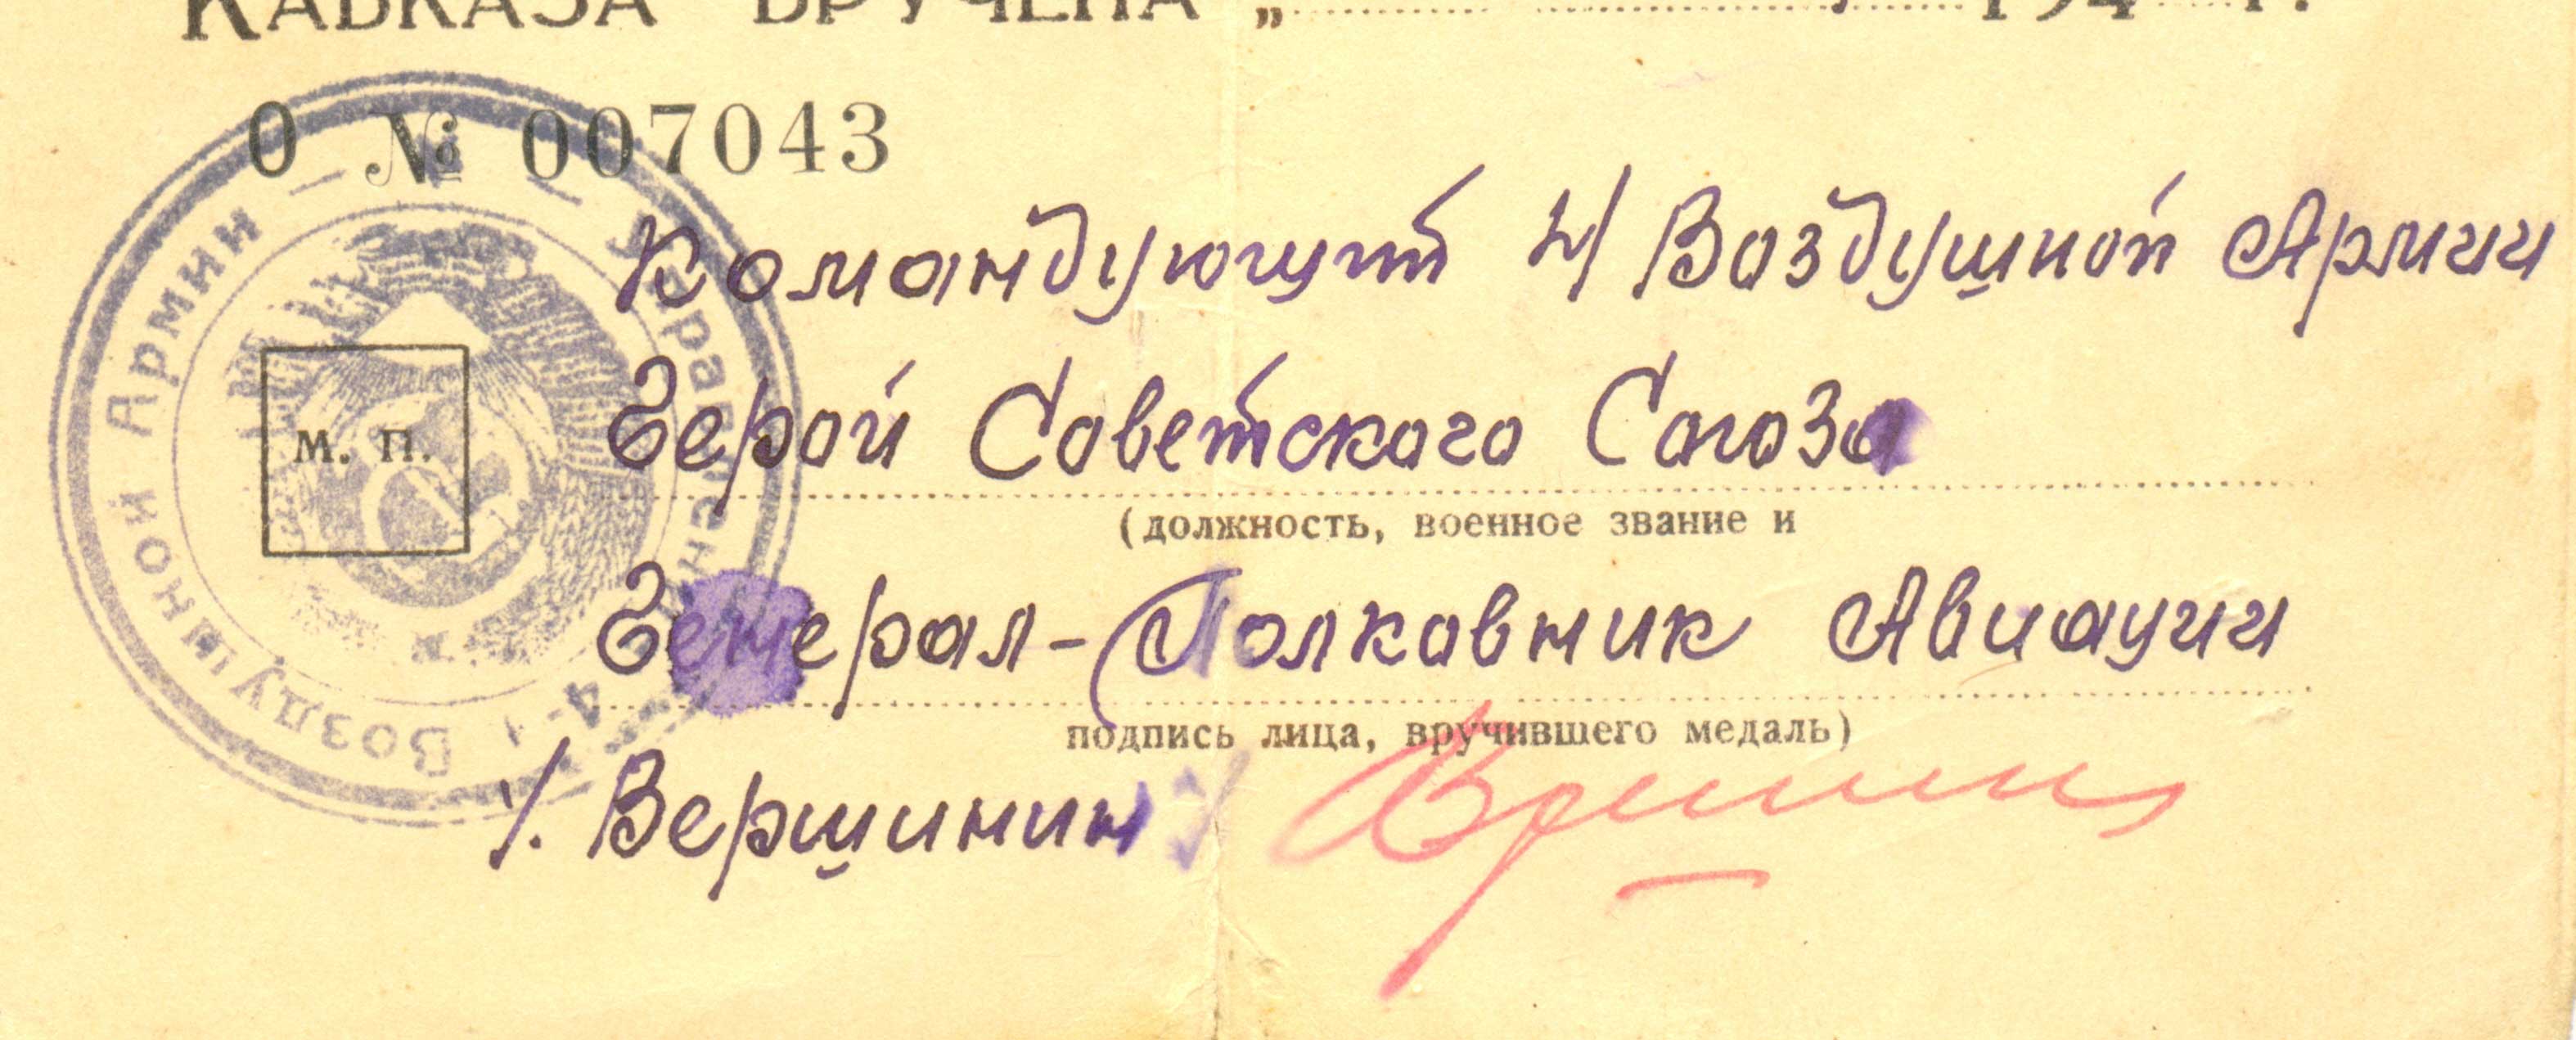 КАВКАЗА ВРУЧЕНА „ 194 г.
О № 007043
Командующий 4/ Воздушной Армии
Герой Советского Союза
(должность, военное звание и
Генерал-Полковник Авиации
подпись лица, вручившего медаль)
/. Вершинин /
М. П.
Управлен
4-й Воздушной Армии